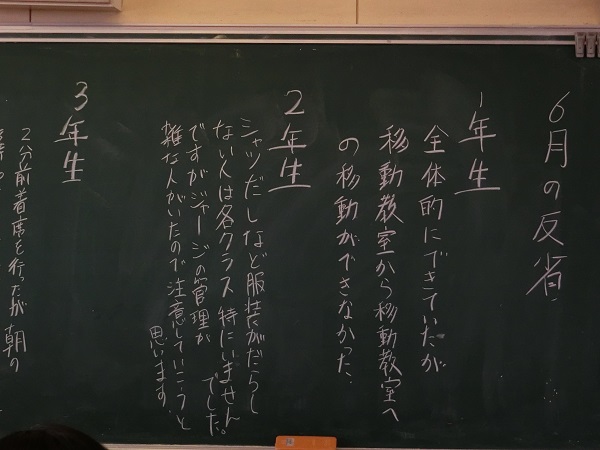 6月の反省
1年生
全体的にできていたが
移動教室から移動教室へ
の移動ができなかった.
2年生
シャツだしなど服装がだらし
ない人は各クラス特にいません
でした。
ですがジャージの管理が
雑な人がいたので注意していこうと
思います.
3年生
2分前着席を行ったが朝の